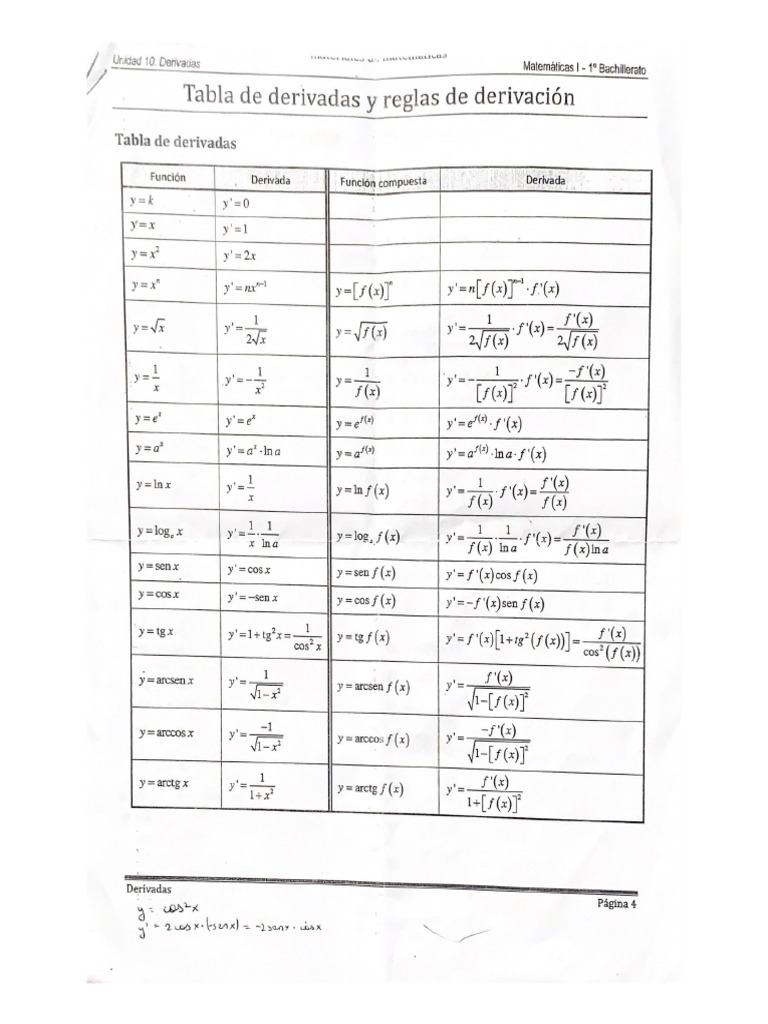 Unidad 10. Derivadas
Matemáticas I - 1º Bachillerato
Tabla de derivadas y reglas de derivación
Tabla de derivadas
Función Derivada Función compuesta Derivada
y = k y' = 0
y = x y' = 1
y = x² y' = 2x
y = xⁿ y' = nxⁿ⁻¹ y = [f(x)]ⁿ y' = n[f(x)]ⁿ⁻¹ · f'(x)
y = √x y' = 1/(2√x) y = √f(x) y' = 1/(2√f(x)) · f'(x) = f'(x)/(2√f(x))
y = 1/x y' = −1/x² y = 1/f(x) y' = −1/[f(x)]² · f'(x) = −f'(x)/[f(x)]²
y = eˣ y' = eˣ y = e^f(x) y' = e^f(x) · f'(x)
y = aˣ y' = aˣ · ln a y = a^f(x) y' = a^f(x) · ln a · f'(x)
y = ln x y' = 1/x y = ln f(x) y' = 1/f(x) · f'(x) = f'(x)/f(x)
y = logₐ x y' = 1/x · 1/ln a y = logₐ f(x) y' = 1/f(x) · 1/ln a · f'(x) = f'(x)/(f(x) ln a)
y = sen x y' = cos x y = sen f(x) y' = f'(x) cos f(x)
y = cos x y' = −sen x y = cos f(x) y' = −f'(x) sen f(x)
y = tg x y' = 1 + tg² x = 1/cos² x y = tg f(x) y' = f'(x)[1 + tg²(f(x))] = f'(x)/cos²(f(x))
y = arcsen x y' = 1/√(1 − x²) y = arcsen f(x) y' = f'(x)/√(1 − [f(x)]²)
y = arccos x y' = −1/√(1 − x²) y = arccos f(x) y' = −f'(x)/√(1 − [f(x)]²)
y = arctg x y' = 1/(1 + x²) y = arctg f(x) y' = f'(x)/(1 + [f(x)]²)
Derivadas
Página 4
y = cos²x
y' = 2cosx·(-senx) = -2senx · cosx